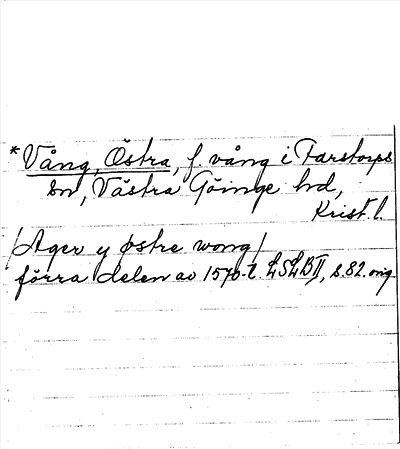 * Vång, Östra, f. vång i Farstorps
sn, Västra Göinge hd,
Krist. l.
/Ager y østre wong/
förra delen av 1570-t. LSLBII, s. 82. orig.